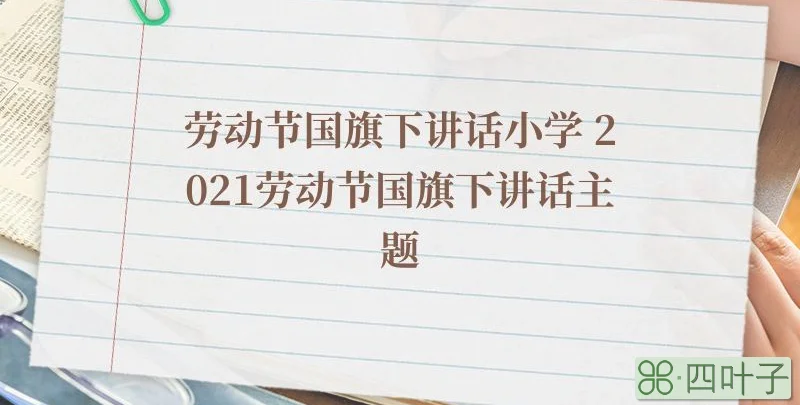 劳动节国旗下讲话小学 2
021劳动节国旗下讲话主
题
四叶子